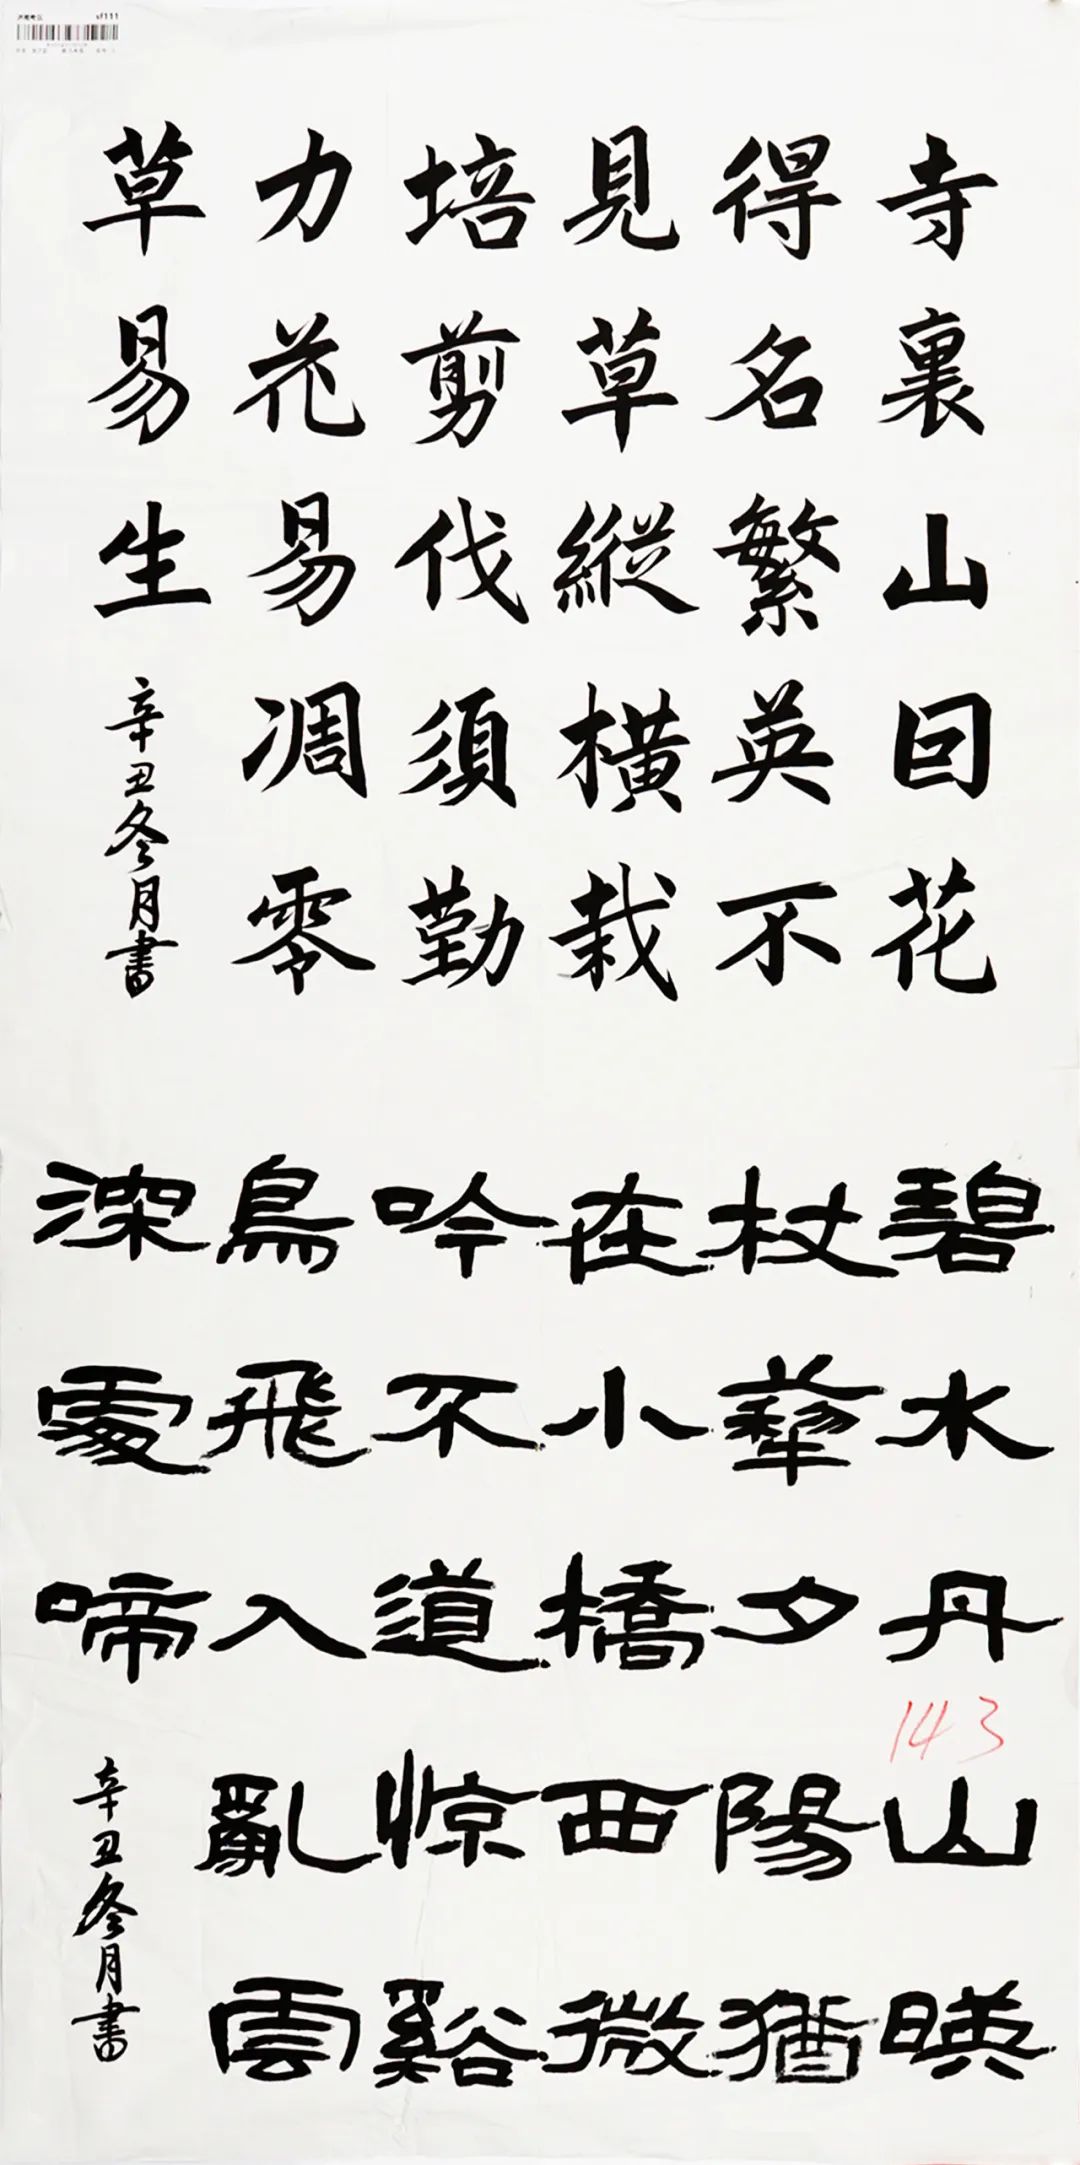 寺裏山囙花
得名繁英不
見草縱橫栽
培剪伐須勤
力花易凋零
草易生
辛丑冬月書
碧水丹山暎
杖藜夕陽猶
在小橋西微
吟不道惊谿
鳥飛入亂雲
深處啼
辛丑冬月書
143